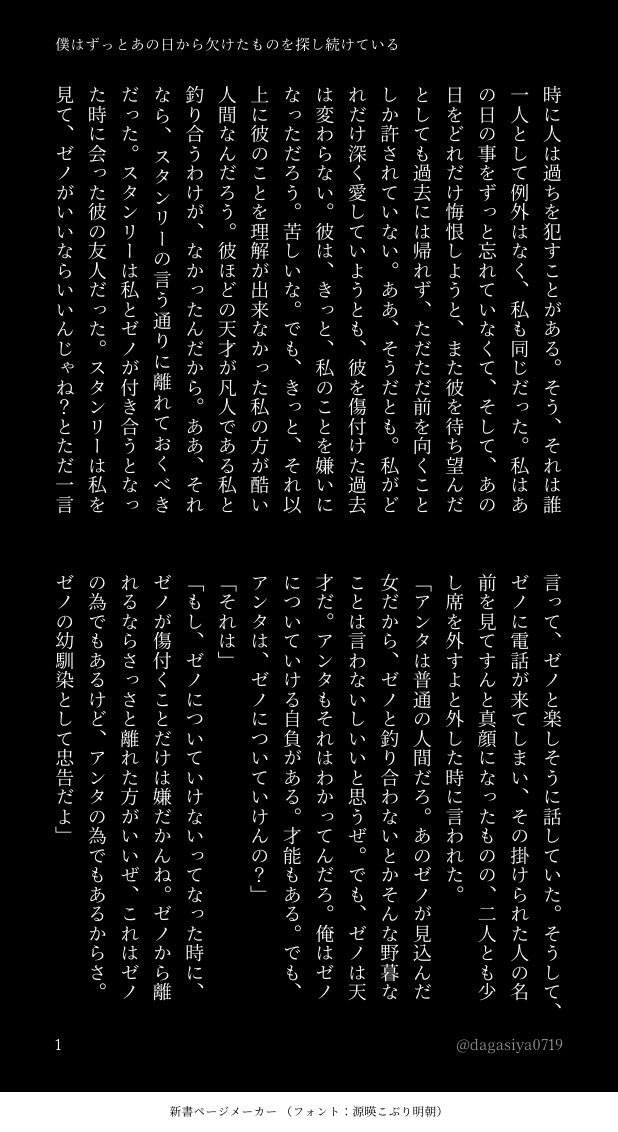 僕はずっとあの日から欠けたものを探し続けている
時に人は過ちを犯すことがある。そう、それは誰
一人として例外はなく、私も同じだった。私はあ
の日の事をずっと忘れていなくて、そして、あの
日をどれだけ悔恨しようと、また彼を待ち望んだ
としても過去には帰れず、ただただ前を向くこと
しか許されていない。ああ、そうだとも。私がど
れだけ深く愛していようとも、彼を傷付けた過去
は変わらない。彼は、きっと、私のことを嫌いに
なっただろう。苦しいな。でも、きっと、それ以
上に彼のことを理解が出来なかった私の方が酷い
人間なんだろう。彼ほどの天才が凡人である私と
釣り合うわけが、なかったんだから。ああ、それ
なら、スタンリーの言う通りに離れておくべき
だった。スタンリーは私とゼノが付き合うとなっ
た時に会った彼の友人だった。スタンリーは私を
見て、ゼノがいいならいいんじゃね？とただ一言
言って、ゼノと楽しそうに話していた。そうして、
ゼノに電話が来てしまい、その掛けられた人の名
前を見てすんと真顔になったものの、二人とも少
し席を外すよと外した時に言われた。
「アンタは普通の人間だろ。あのゼノが見込んだ
女だから、ゼノと釣り合わないとかそんな野暮な
ことは言わないしいいと思うぜ。でも、ゼノは天
才だ。アンタもそれはわかってんだろ。俺はゼノ
についていける自負がある。才能もある。でも、
アンタは、ゼノについていけんの？」
「それは」
「もし、ゼノについていけないってなった時に、
ゼノが傷付くことだけは嫌だかんね。ゼノから離
れるならさっさと離れた方がいいぜ、これはゼノ
の為でもあるけど、アンタの為でもあるからさ。
ゼノの幼馴染として忠告だよ」
1
@dagasiya0719
新書ページメーカー（フォント：源暎こぶり明朝）